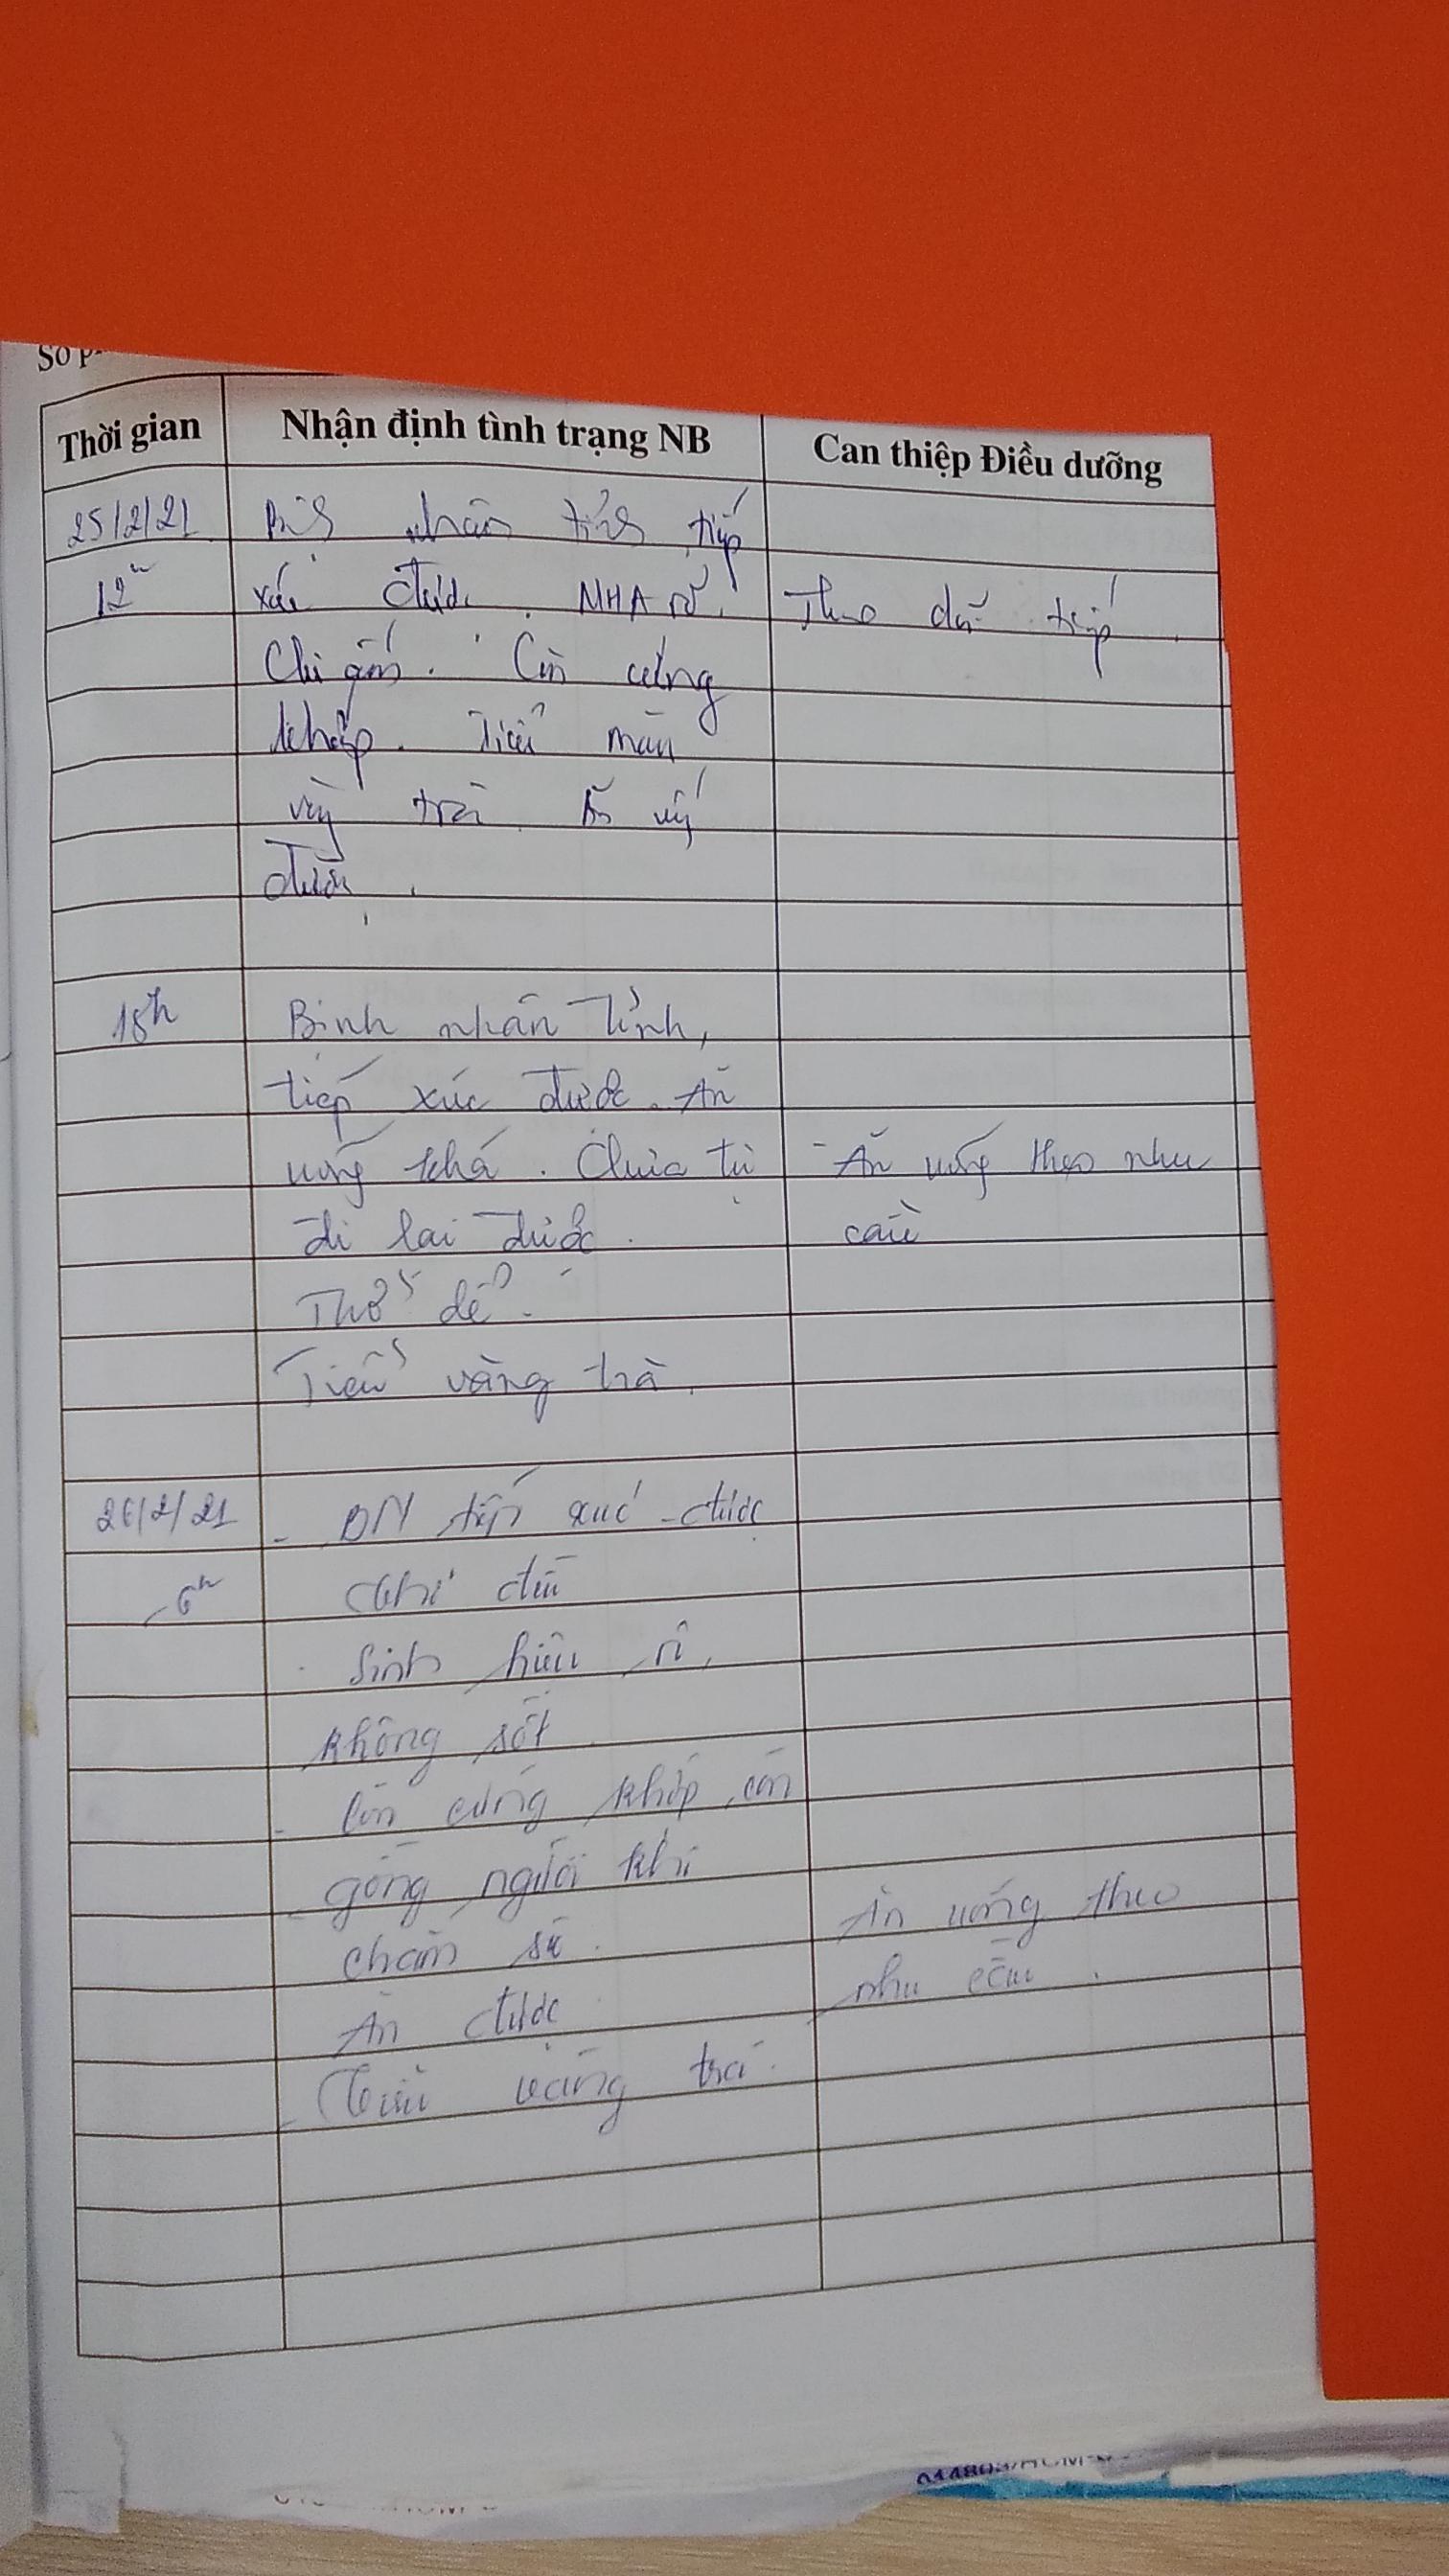 Số
Thời gian Nhận định tình trạng NB Can thiệp Điều dưỡng
25/2/21 nhân tỉnh tiếp
12h xúc được. NHA rõ. Theo dõi tiếp
Chi ấm. Còn cứng
khớp. Tiểu màu
vàng trà. Ăn uống
được.
18h Bệnh nhân tỉnh,
tiếp xúc được. Ăn
uống khá. Chưa tự - Ăn uống theo nhu
đi lại được. cầu
Thở dễ.
Tiểu vàng trà.
26/2/21 - BN tiếp xúc được
6h
Sinh hiệu
không sốt
- Còn cứng khớp, còn
- gồng người khi
chăm sóc. Ăn uống theo
Ăn được nhu cầu.
- Tiểu vàng trà.